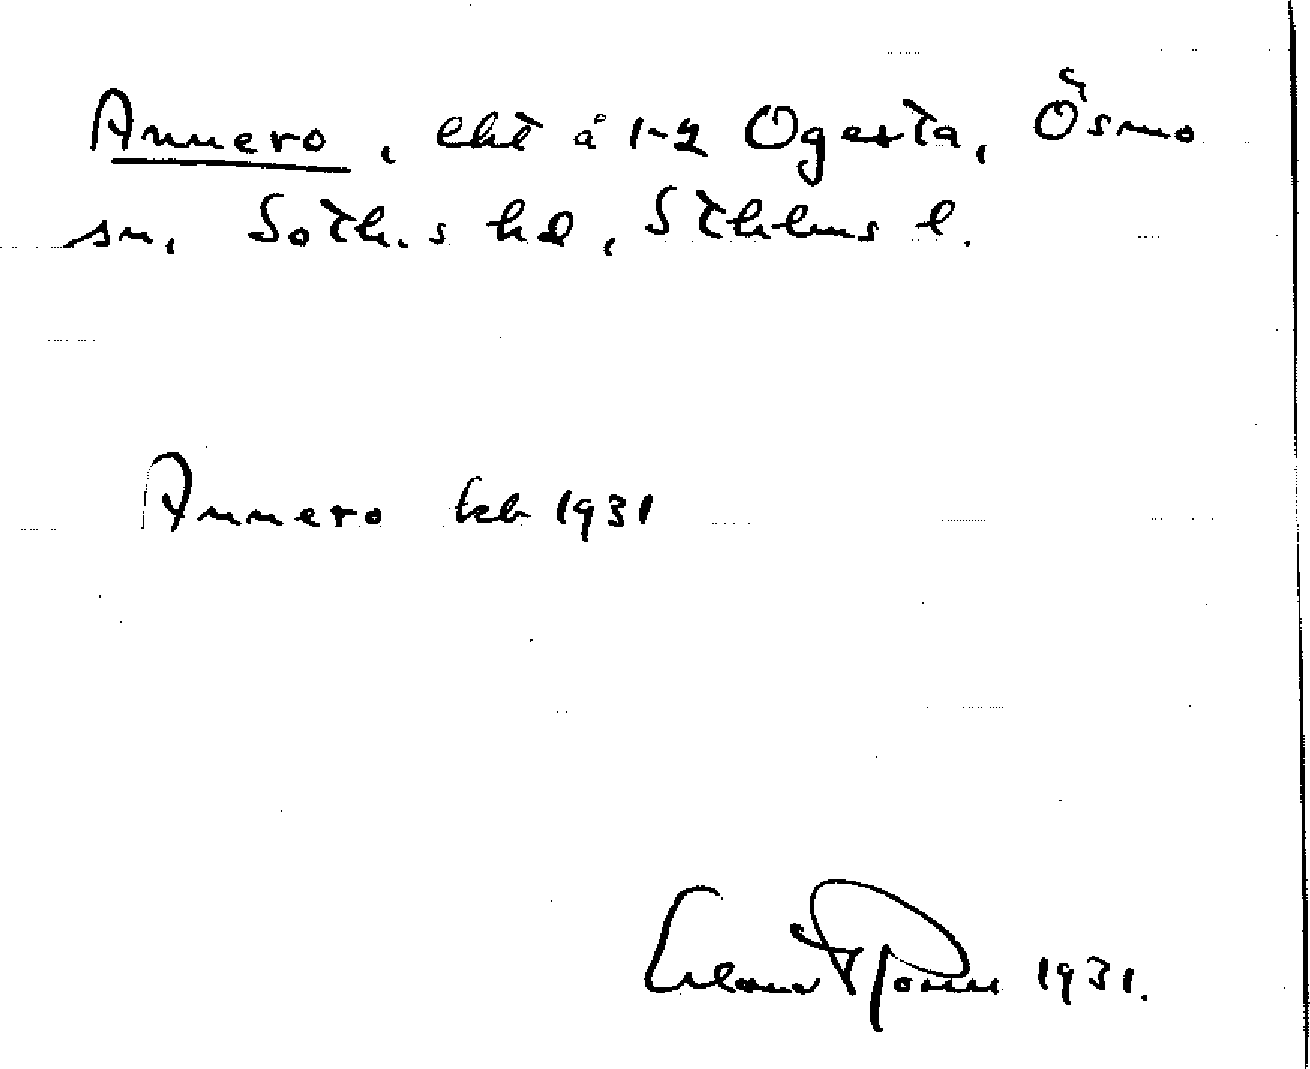 Annero, lht å 1-2 Ogesta, Ösmo
sn, Soth.s hd, Sthlms l.
Annero kb 1931
1931.